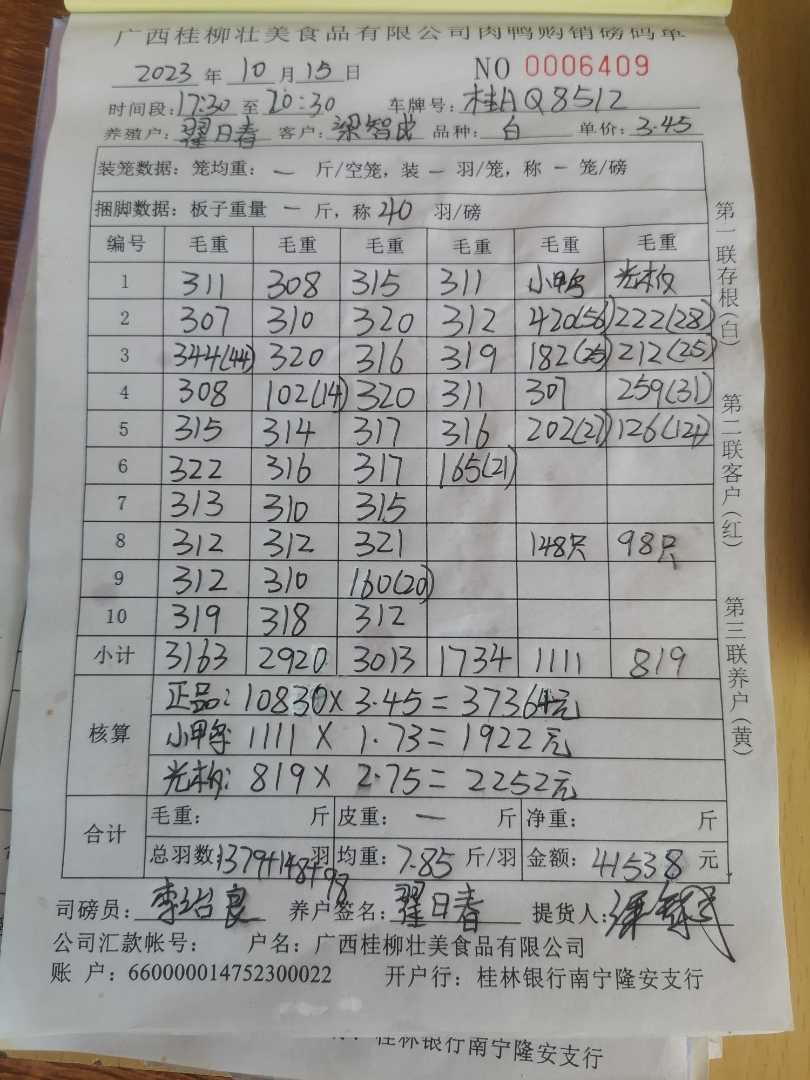 广西桂柳壮美食品有限公司肉鸭购销磅码单
2023年10月15日 NO 0006409
时间段:17:30至20:30 车牌号:桂AQ8512
养殖户:翟日春 客户:梁智成 品种:白 单价:3.45
装笼数据:笼均重:一斤/空笼,装一羽/笼,称一笼/磅
捆脚数据:板子重量一斤,称40羽/磅
编号 毛重 毛重 毛重 毛重 毛重 毛重
1 311 308 315 311 小鸭 光板
2 307 310 320 312 420(56) 222(28)
3 344(44) 320 316 319 182(25) 212(25)
4 308 102(14) 320 311 307 259(31)
5 315 314 317 316 202(27) 126(14)
6 322 316 317 165(21)
7 313 310 315
8 312 312 321 148只 98只
9 312 310 160(20)
10 319 318 312
小计 3163 2920 3013 1734 1111 819
核算
正品:10830×3.45=37364元
小鸭:1111×1.73=1922元
光板:819×2.75=2252元
合计
毛重: 斤 皮重:一斤 净重: 斤
总羽数:1379+148+98羽 均重:7.85斤/羽 金额:41538元
司磅员: 养户签名:翟日春 提货人:
公司汇款帐号: 户名:广西桂柳壮美食品有限公司
账 户:660000014752300022 开户行:桂林银行南宁隆安支行
第一联存根(白)
第二联客户(红)
第三联养户(黄)
桂林银行南宁隆安支行